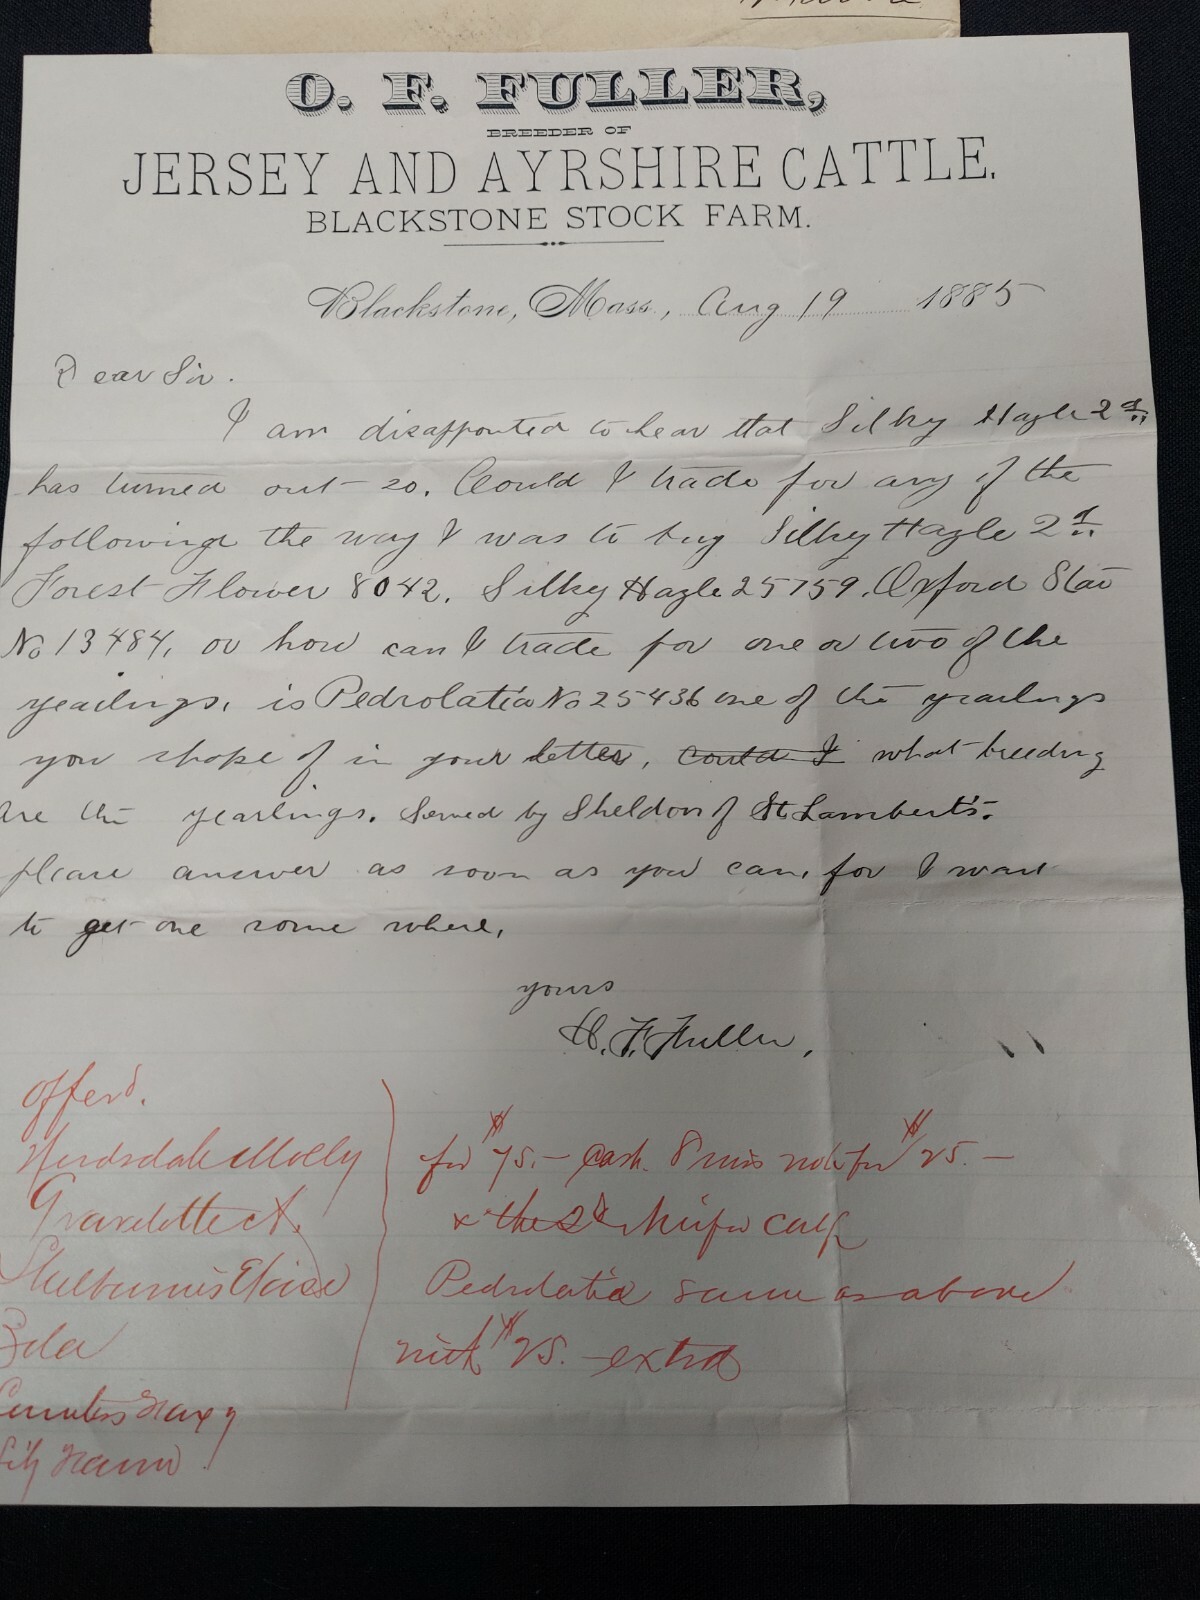 O. F. FULLER,
BREEDER OF
JERSEY AND AYRSHIRE CATTLE.
BLACKSTONE STOCK FARM.
Blackstone, Mass., Aug 19 1885
Dear Sir.
I am disappouted to hear that Silky Hazle 2d
has turned out so. Could I trade for any of the
following the way I was to buy Silky Hazle 2d
Forest Flower 8042. Silky Hazle 25759. Oxford Star
No 13484, or how can I trade for one or two of the
yearlings. is Pedrolatia No 25436 one of the yearlings
you spoke of in your letter, Could I what breeding
are the yearlings. Served by Sheldon of St Lambert's.
please answer as soon as you can, for I want
to get one some where.
yours
O. F. Fuller.
Offerd.
Molly for $75.— Cash. 8 mos note for $25.—
& the 2d heifer calf
Pedrolatia same as above
Zola with $25. extra